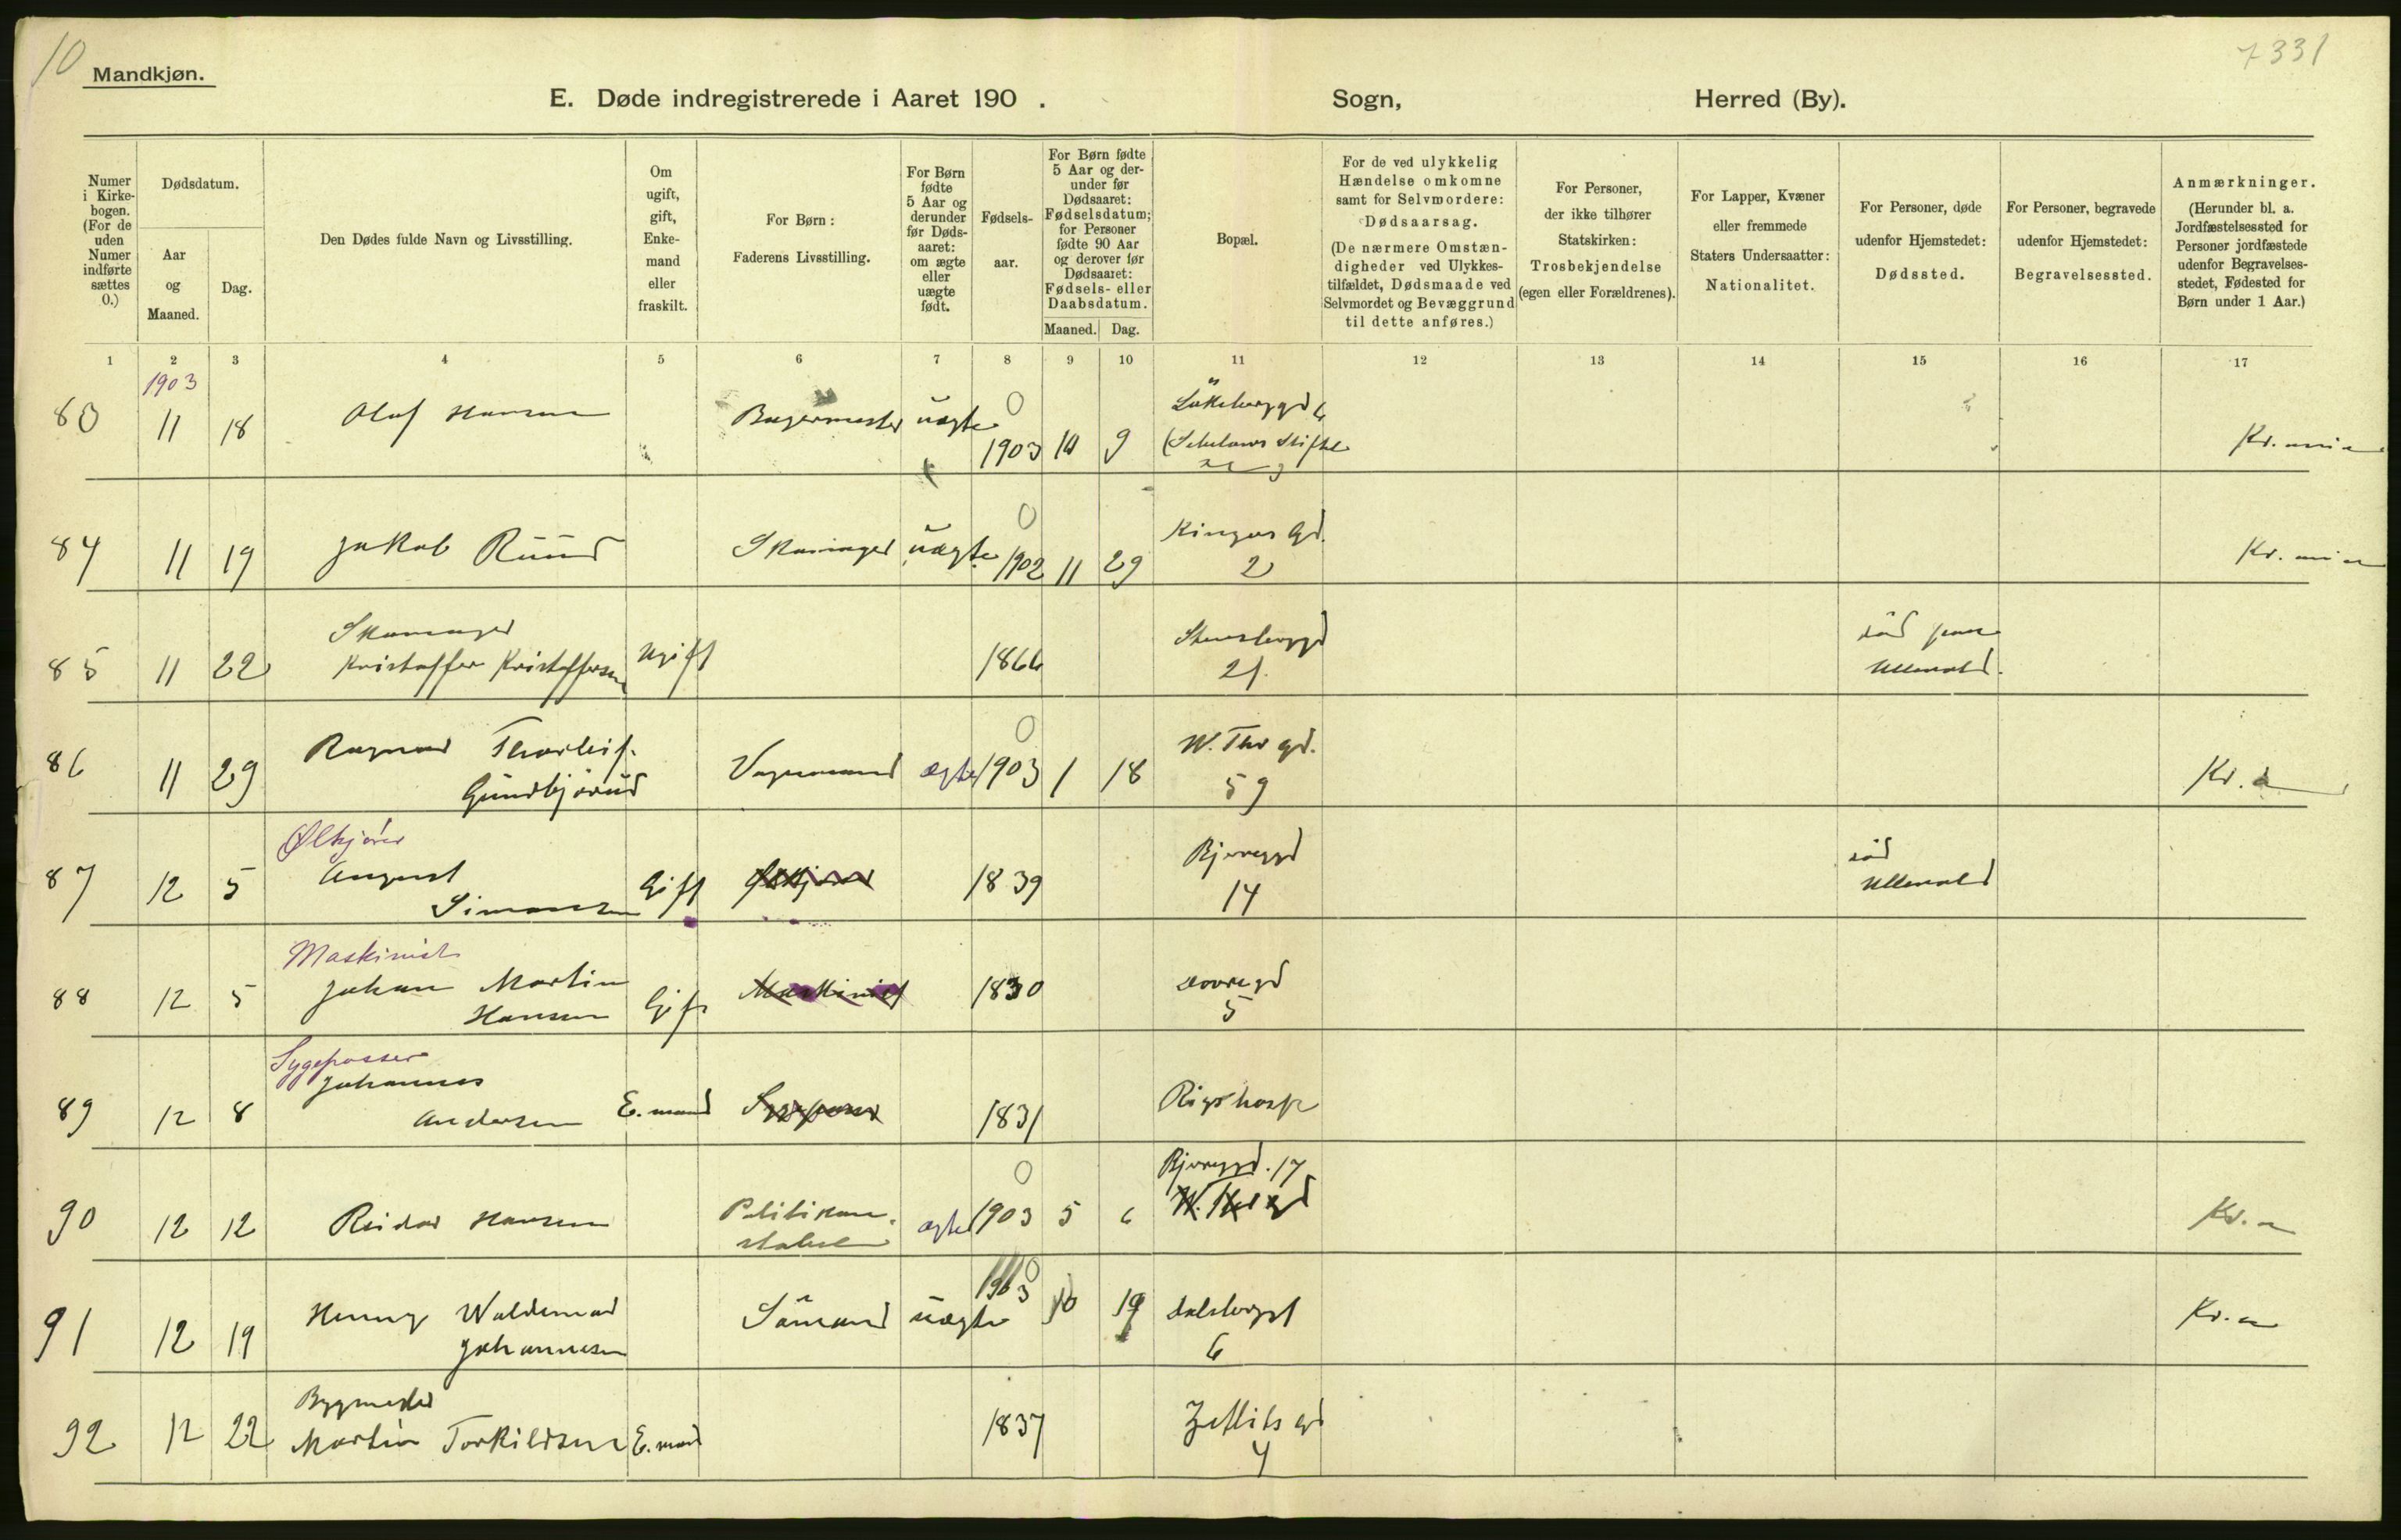 10
7331
Mandkjøn.
E. Døde indregistrerede i Aaret 190 . Sogn, Herred (By).
Numer i Kirkebogen. (For de uden Numer indførte sættes 0.)
Dødsdatum.
Aar og Maaned.
Dag.
Den Dødes fulde Navn og Livsstilling.
Om ugift, gift, Enkemand eller fraskilt.
For Børn: Faderens Livsstilling.
For Børn fødte 5 Aar og derunder før Dødsaaret: om ægte eller uægte født.
Fødselsaar.
For Børn fødte 5 Aar og derunder før Dødsaaret: Fødselsdatum; for Personer fødte 90 Aar og derover før Dødsaaret: Fødsels- eller Daabsdatum.
Maaned. Dag.
Bopæl.
For de ved ulykkelig Hændelse omkomne samt for Selvmordere: Dødsaarsag. (De nærmere Omstændigheder ved Ulykkestilfældet, Dødsmaade ved Selvmordet og Bevæggrund til dette anføres.)
For Personer, der ikke tilhører Statskirken: Trosbekjendelse (egen eller Forældrenes).
For Lapper, Kvæner eller fremmede Staters Undersaatter: Nationalitet.
For Personer, døde udenfor Hjemstedet: Dødssted.
For Personer, begravede udenfor Hjemstedet: Begravelsessted.
Anmærkninger. (Herunder bl. a. Jordfæstelsessted for Personer jordfæstede udenfor Begravelsesstedet, Fødested for Børn under 1 Aar.)
1 2 3 4 5 6 7 8 9 10 11 12 13 14 15 16 17
1903
83 11 18 Olaf Hansen Bagermester uægte 0 1903 10 9 Kr.ania
84 11 19 Jakob Ruud Skomager uægte 0 1902 11 29 Ringos Gd. 2 Kr.ania
85 11 22 Skomager Kristoffer Kristoffersen Ugift 1866 Stensberggd 21. død paa Ullevold.
86 11 29 Ragnar Thorleif Gundbjørud Vognmand ægte 0 1903 1 18 W. Thr gd. 59 Kr.a
87 12 5 Ølkjører August Simonsen Gift Ølkjører 1839 Bjerregd 14 død Ullevold
88 12 5 Maskinist Johan Martin Hansen Gift Maskinist 1830 Dovregd 5
89 12 8 Sygepasser Johannes Andersen E.mand Sygepasser 1831 Rigshosp
90 12 12 Reidar Hansen Politikonstabel ægte 0 1903 5 6 Bjerregd. 17 Kr.a
91 12 19 Henry Waldemar Johannesen Sømand uægte 0 1903 10 19 Dalsbergst 6 Kr.a
92 12 22 Bygmester Martin Torkildsen E.mand 1837 Zetlits gd 4